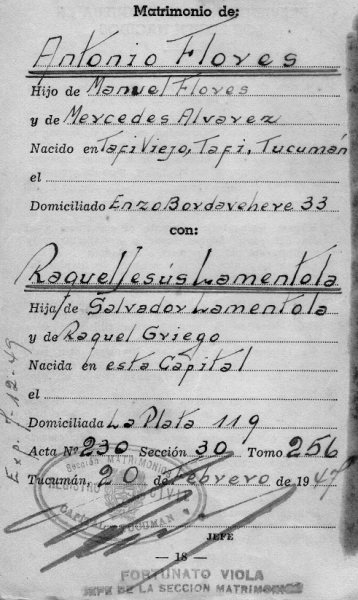 Matrimonio de:
Antonio Flores
Hijo de Manuel Flores
y de Mercedes Alvarez
Nacido en Tafi Viejo, Tafi, Tucumán
el
Domiciliado Enzo Bordavehere 33
con:
Raquel Jesús Lamentola
Hija de Salvador Lamentola
y de Raquel Griego
Nacida en esta Capital
el
Domiciliada La Plata 119
Acta Nº 230 Sección 30 Tomo 256
Tucumán, 20 de febrero de 1947
Exp. 7-12-49
Sección MATRIMONIOS
REGISTRO CIVIL
CAPITAL TUCUMAN
JEFE
— 18 —
FORTUNATO VIOLA
JEFE DE LA SECCION MATRIMONIOS